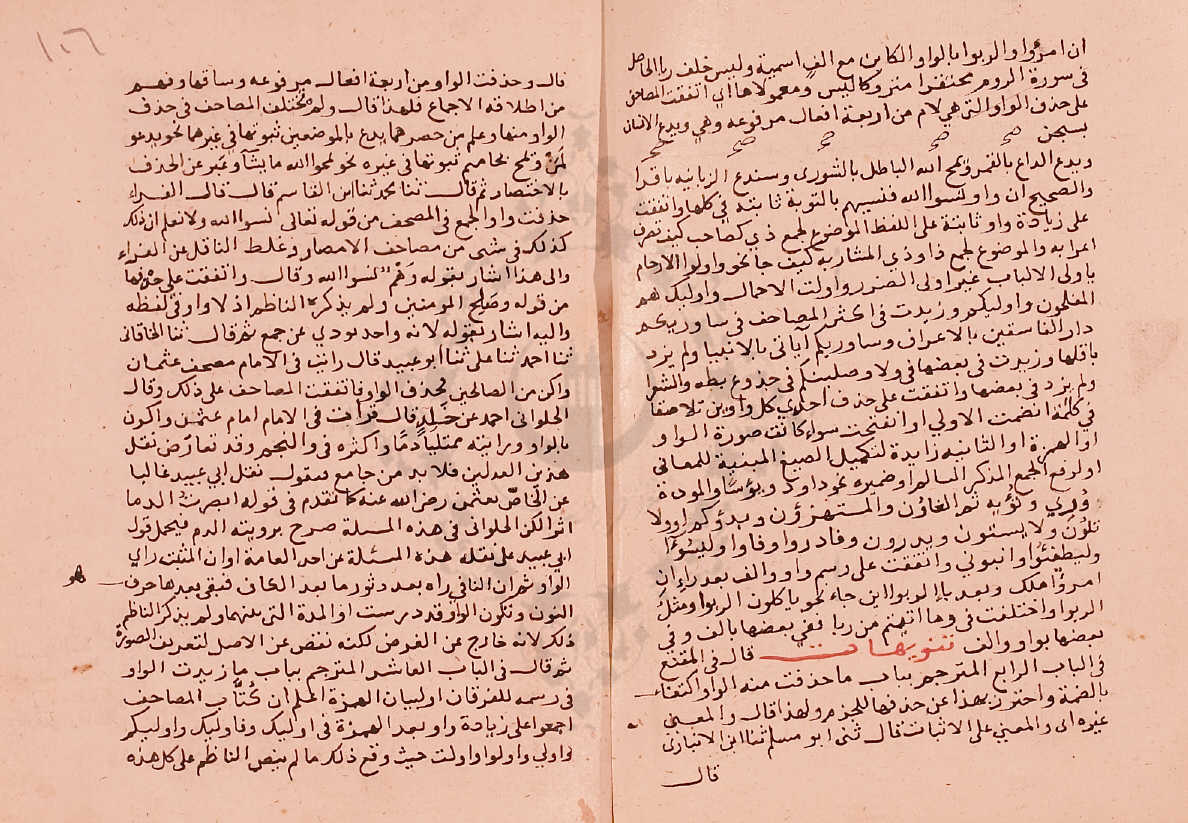 ان امرؤا والربوا بالواو الكاين مع الف اسمية وليس خلف ربا الحاصل
في سورة الروم محتقرا متروكا ليس ومعمولاها اي اتفقت المصاحف
على حذف الواو التي هي لام من اربعة افعال مرفوعه وهي ويدع الانسان
بسبحن
صح صح صح صح صح
ويدع الداع بالقمر ويمح الله الباطل بالشورى وسندع الزبانيه باقرا
والصحيح ان واو نسوا الله فنسيهم بالتوبة ثابتة في كلها واتفقت
على زيادة واو ثانية على اللفظ الموضوع لجمع ذي كصاحب كيف تصرف
اعرابه والموضوع لجمع ذا وذي المشار به كيف جا نحو واولوا الارحام
يا ولى الالباب غير اولى الضرر واولت الاحمال واوليك هم
المفلحون واوليكم وزيدت في اكثر المصاحف في ساوريكم
دار الفاسقين بالاعراف وساوريكم آياتي بالانبيا ولم يزد
باقلها وزيدت في بعضها في ولاوصلبنكم في جذوع بطه والشعرا
ولم يزد في بعضها واتفقت على حذف احدي كل واوين تلاصقا
في كلمة انضمت الاولى او انفتحت سواء كانت صورة الواو
او الهمزة او الثانيه زايدة لتكميل الصيغ المبنية للمعاني
او لرفع الجمع المذكر السالم او ضميره نحو داود ويؤسا والمودة
وُرِي وتؤيه ثم الغاؤن والمستهزؤن ويدؤكم او ولا
تلون ولا يستون ويدرون وفادروا وفاوا وليسؤا
وليطفئوا وانبوني واتفقت على رسم واو والف بعد راء ان
امرؤا هلك وبعد با الربوا اين جاء نحو ياكلون الربوا ومثل
الربوا واختلفت في وما اتيتم من ربا ففي بعضها بالف وفي
بعضها بواو والف تنويهات قال في المقنع
في الباب الرابع المترجم بباب ما حذفت منه الواو اكتفاء
بالضمة واحترز بهذا عن حذفها للجزم ولهذا قال والمعنى
غيره اى والمعني على الاثبات قال ثنى ابو مسلم ثنا ابن الانبارى
قال
١٠٦
قال وحذفت الواو من اربعة افعال مرفوعه وساقها وفهم
من اطلاقه الاجماع فلهذا قال ولم تختلف المصاحف في حذف
الواو منها وعلم من حصرهما يدع بالموضعين ثبوتها في غيرهما نحو يدعو
لمن ويمح بحاميم ثبوتها في غيره نحو يمحوا الله ما يشآ وعبر عن الحذف
بالاختصار ثم قال ثنا محمد ثنا ابن القاسم قال قال الفراء
حذفت واو الجمع في المصحف من قوله تعالى نسوا الله ولا نعلم ان ذلك
كذلك في شى من مصاحف الامصار وغلط الناقل عن الفراء
والى هذا اشار بقوله وَهْمٌ نسوا الله وقال واتفقت على حذفها
من قوله وصلح المومنين ولم يذكره الناظم اذ لا واو في لفظه
واليه اشار بقوله لانه واحد يودي عن جمع ثم قال ثنا الخاقانى
ثنا احمد ثنا على ثنا ابو عبيد قال رايت في الامام مصحف عثمان
واكن من الصالحين بحذف الواو فاتفقت المصاحف على ذلك وقال
الحلوانى احمد عن خلد قال قرأت في الامام امام عثمن واكون
بالواو ورايته ممتليا دما واكثره في والنجم وقد تعارض نقل
هذين العدلين فلابد من جامع فنقول نقل ابي عبيد غالبا
عن الخاص بعثمن رضي الله عنه كما تقدم في قوله ابصرت الدما
اثرا لكن الحلوانى في هذه المسلة صرح برويته الدم فيحمل قول
ابي عبيد على نقله هذه المسئلة عن احد العامة او ان المثبت راي
الواو ثم ان النافي راه بعد دثور ما بعد الكاف فبقى بعدها حرف هو
النون وتكون الواو قد درست او المدة التي بينهما ولم يذكر الناظم
ذلك لانه خارج عن الغرض لكنه نقص عن الاصل لتعريف الصورة
ثم قال في الباب العاشر المترجم بباب ما زيدت الواو
في رسمه للفرقان او لبيان الهمزة اعلم ان كُتَّاب المصاحف
اجمعوا على زيادة واو بعد الهمزة في اوليك وفاوليك واوليكم
واولي واولوا واولت حيث وقع ذلك ما لم ينص الناظم على كل هذه